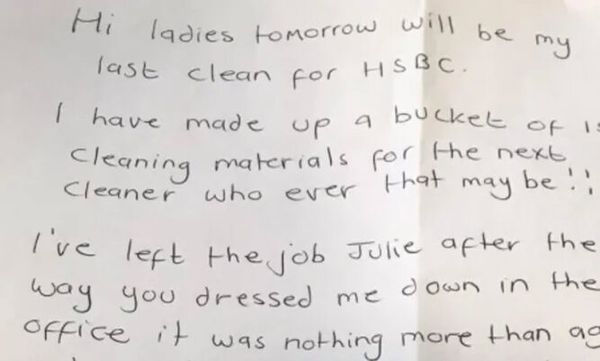 Hi ladies tomorrow will be my
last clean for HSBC.
I have made up a bucket of
cleaning materials for the next
cleaner who ever that may be!!
I've left the job Julie after the
way you dressed me down in the
office it was nothing more than